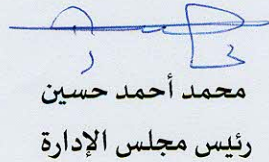 محمد أحمد حسين
رئيس مجلس الإدارة